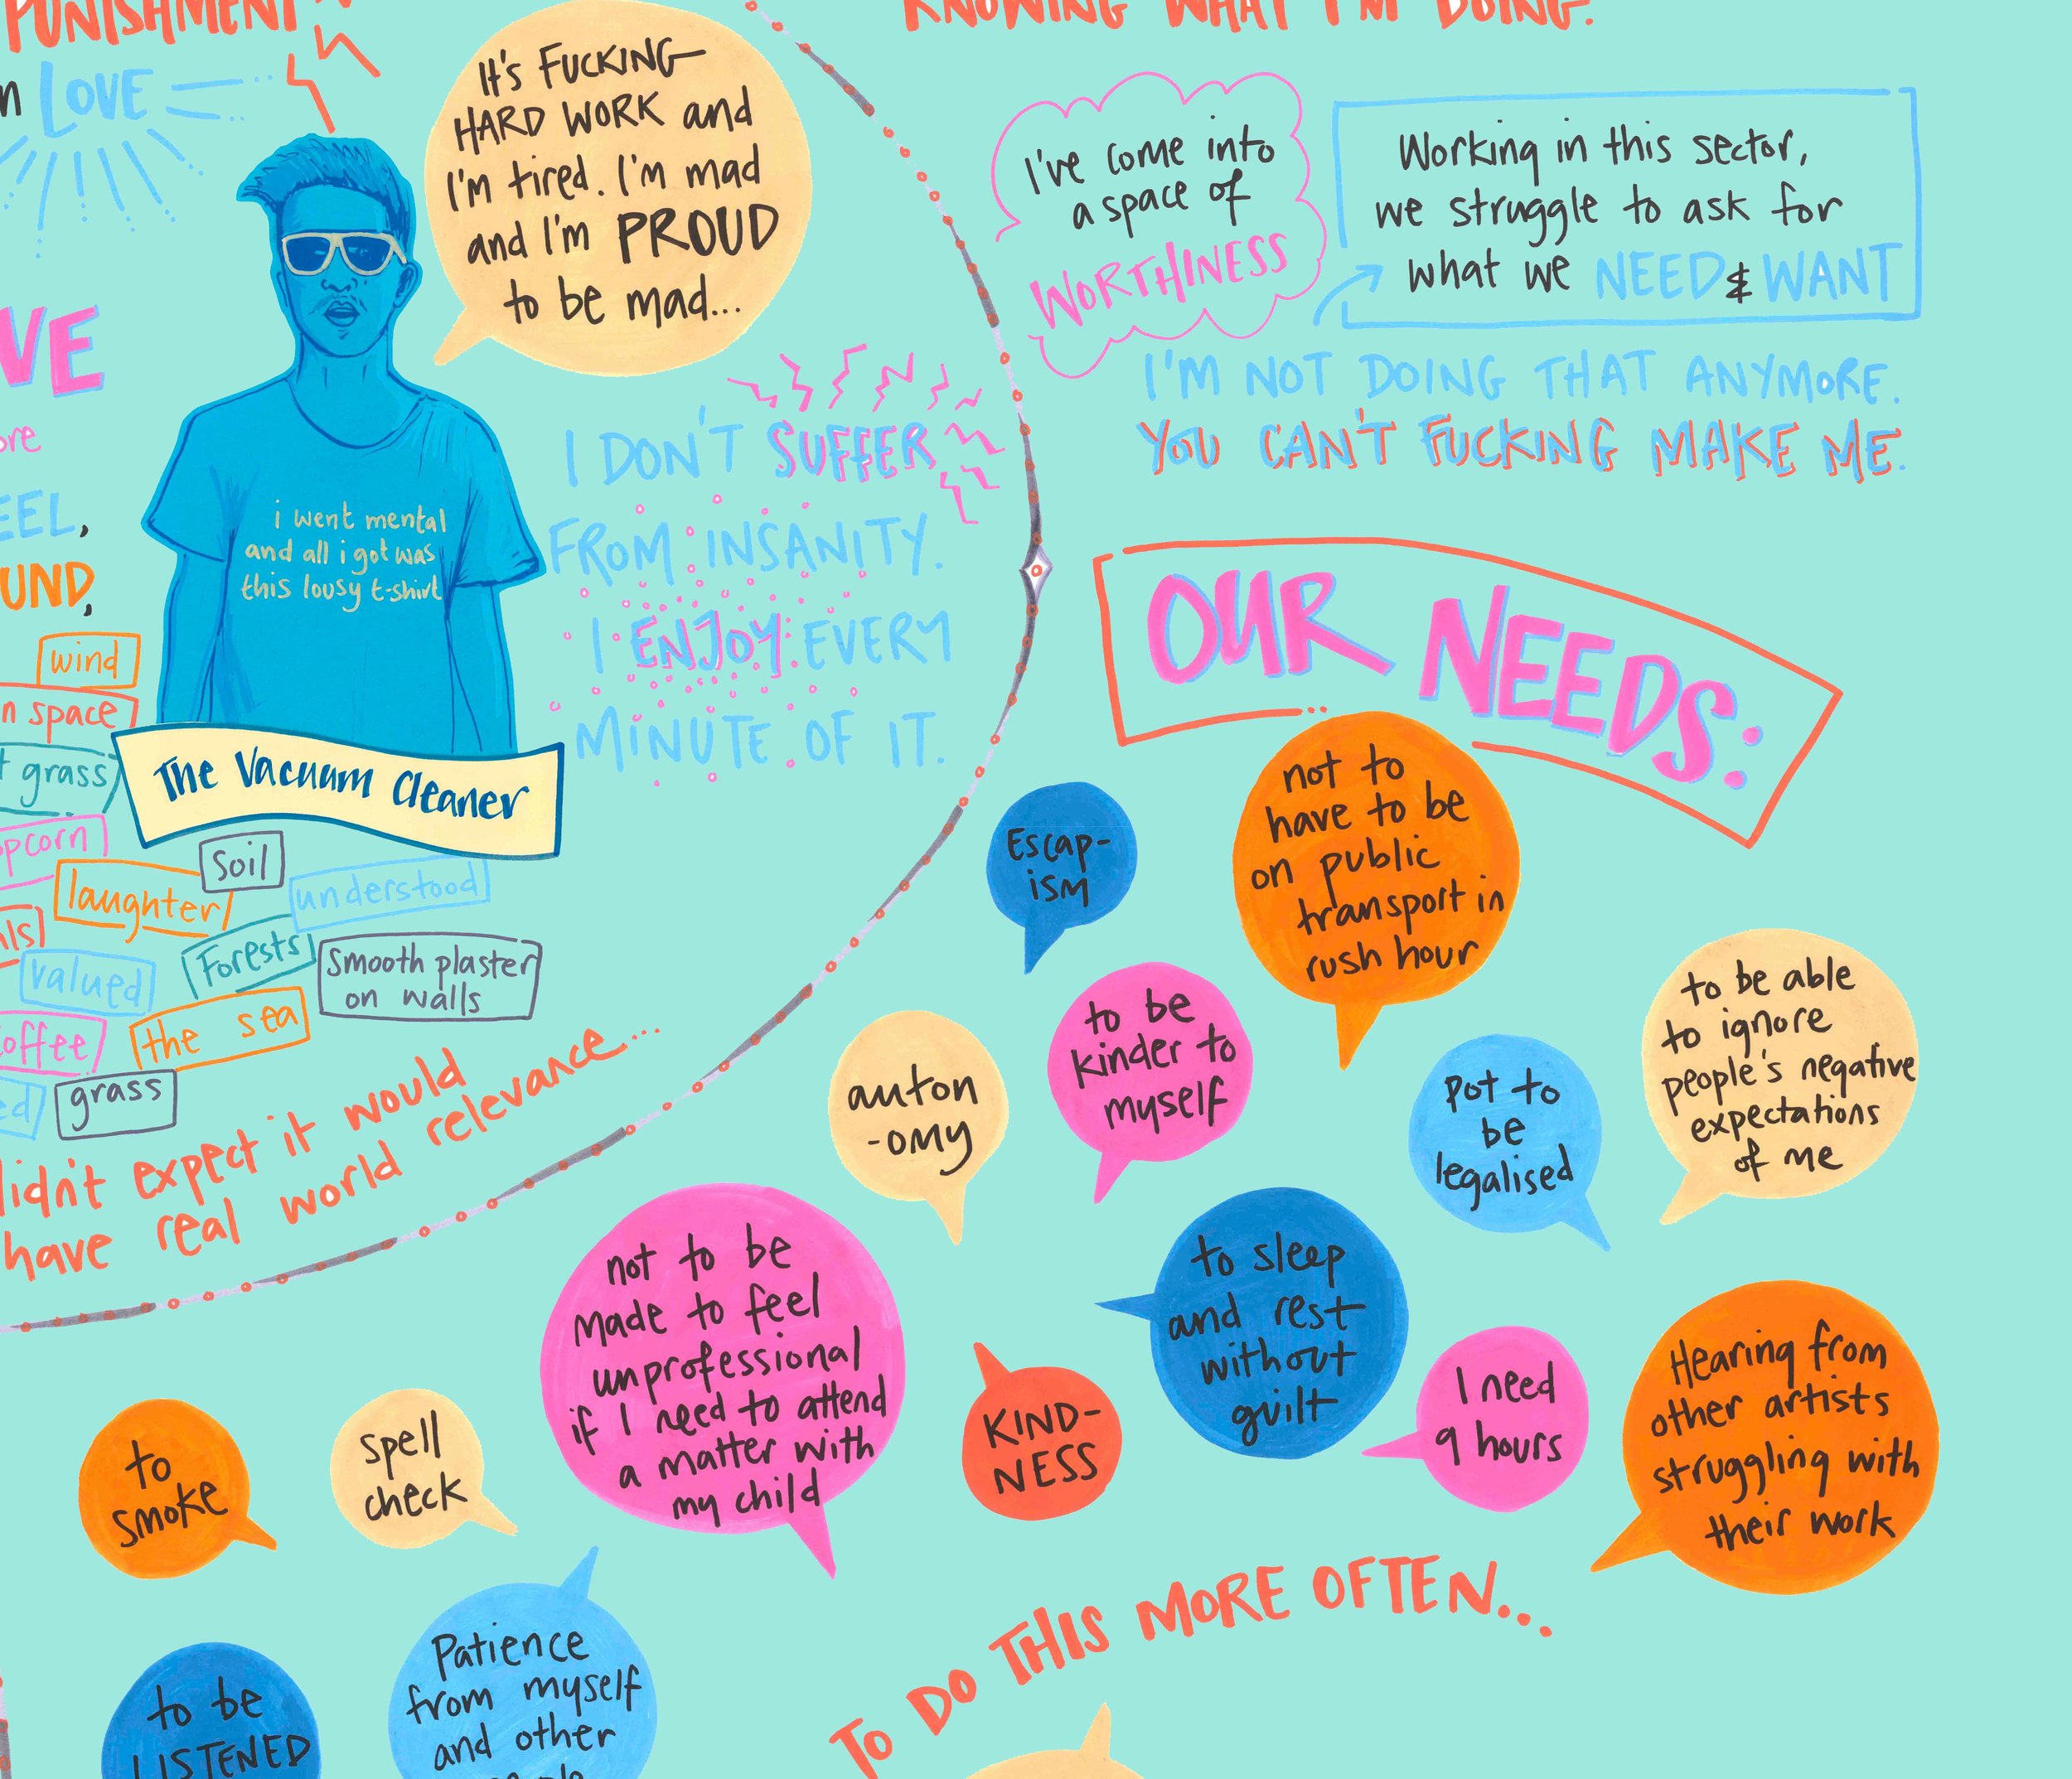 PUNISHMENT
LOVE
It's FUCKING
HARD WORK and
I'm tired. I'm mad
and I'm PROUD
to be mad...
i went mental
and all i got was
this lousy t-shirt
The Vacuum Cleaner
I DON'T SUFFER
FROM INSANITY.
I ENJOY EVERY
MINUTE OF IT.
wind
space
grass
soil
laughter
understood
Forests
Smooth plaster
on walls
valued
the sea
grass
expect it would
have real world relevance...
KNOWING WHAT I'M DOING.
I've come into
a space of
WORTHINESS
Working in this sector,
we struggle to ask for
what we NEED & WANT
I'M NOT DOING THAT ANYMORE.
YOU CAN'T FUCKING MAKE ME.
OUR NEEDS:
Escap-
ism
not to
have to be
on public
transport in
rush hour
to be able
to ignore
people's negative
expectations
of me
auton
-omy
to be
kinder to
myself
pot to
be
legalised
not to be
made to feel
unprofessional
if I need to attend
a matter with
my child
to sleep
and rest
without
guilt
KIND-
NESS
I need
9 hours
Hearing from
other artists
struggling with
their work
to
smoke
spell
check
to be
LISTENED
Patience
from myself
and other
TO DO THIS MORE OFTEN...